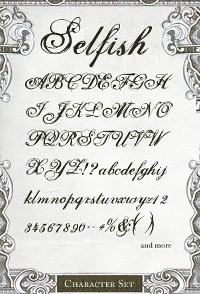 Selfish
ABCDEFGH
IJKLMNO
PQRSTUVW
XYZ!?abcdefghij
klmnopqrstuvwxyz12
34567890-- #%&( )
and more
CHARACTER SET